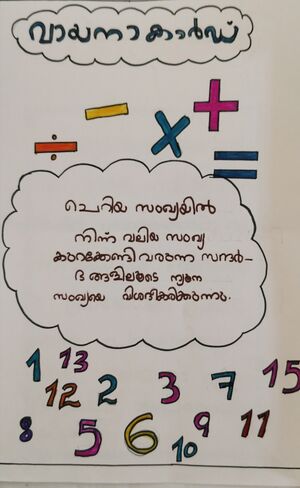 വായനാകാർഡ്
÷ − × + =
ചെറിയ സംഖ്യയിൽ
നിന്ന് വലിയ സംഖ്യ
കുറക്കേണ്ടി വരുന്ന സന്ദർ-
ഭങ്ങളിലൂടെ ന്യൂന
സംഖ്യയെ വിശദീകരിക്കുന്നു.
1 13 12 2 3 7 15
8 5 6 10 9 11